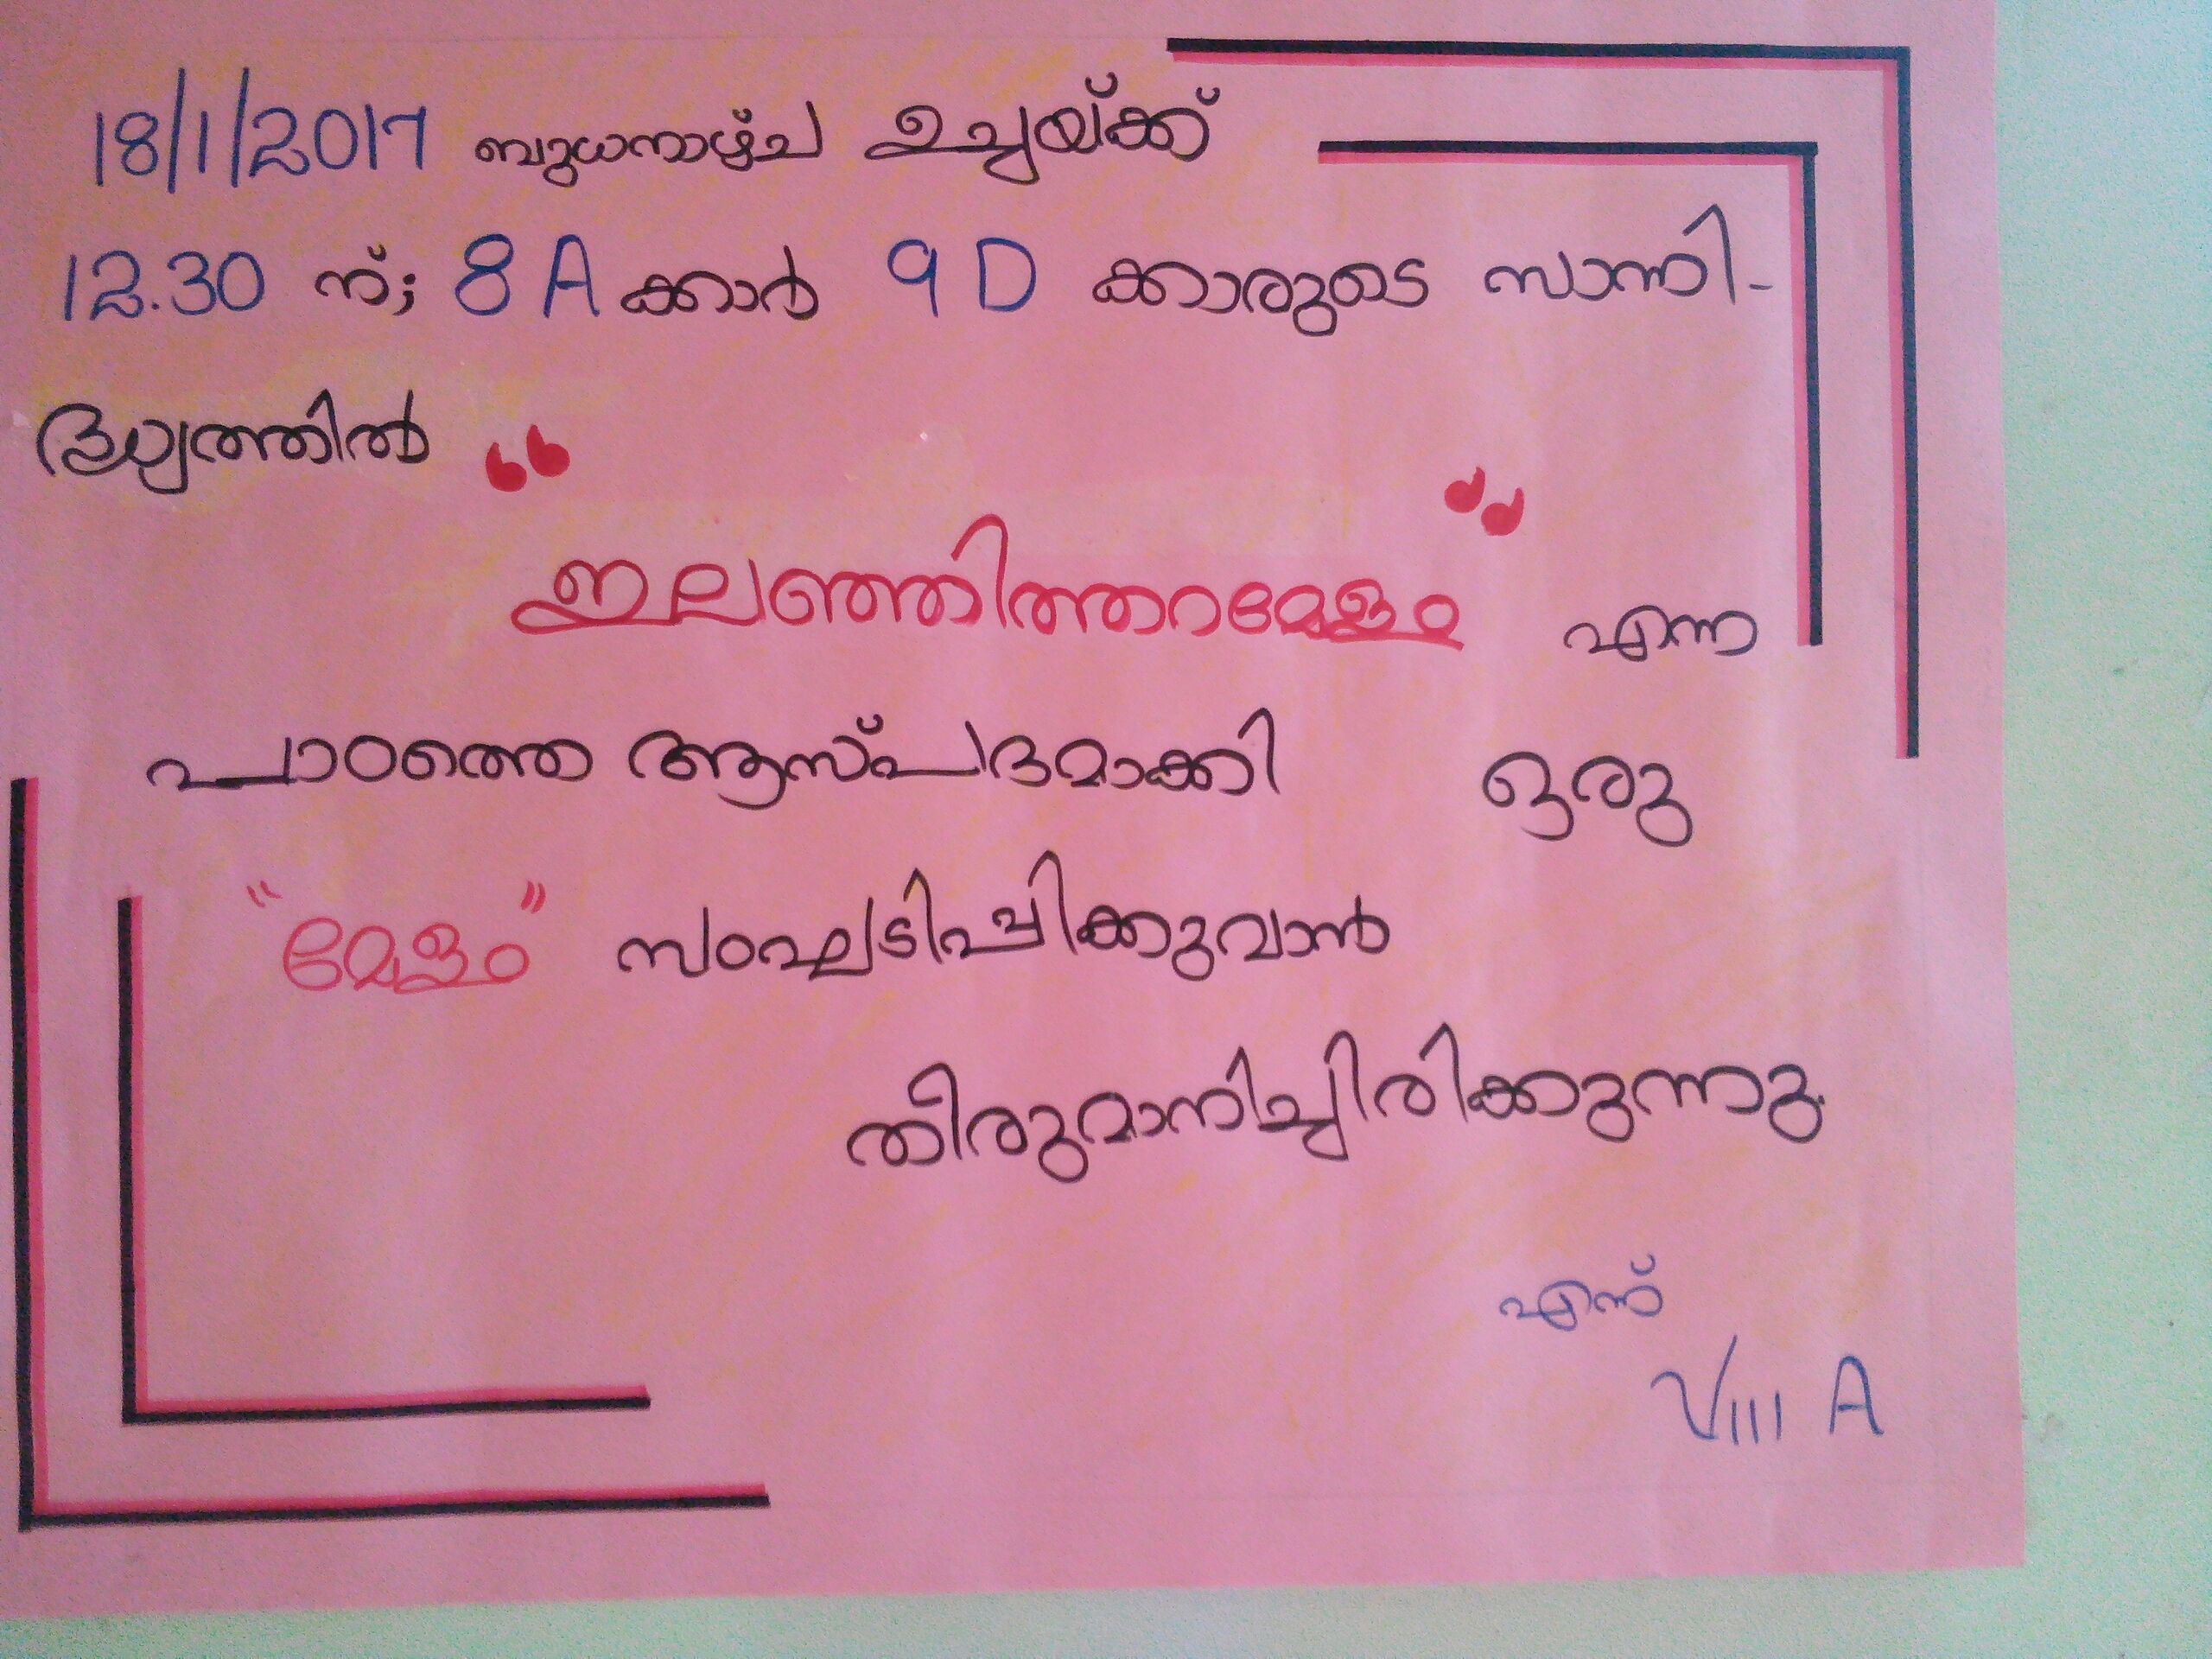 18/1/2017 ബുധനാഴ്ച ഉച്ചയ്ക്ക്
12.30 ന്; 8 A ക്കാർ 9 D ക്കാരുടെ സാന്നി-
ദ്ധ്യത്തിൽ
“ഇലഞ്ഞിത്തറമേളം” എന്ന
പാഠത്തെ ആസ്പദമാക്കി ഒരു
“മേളം” സംഘടിപ്പിക്കുവാൻ
തീരുമാനിച്ചിരിക്കുന്നു.
എന്ന്
VIII A